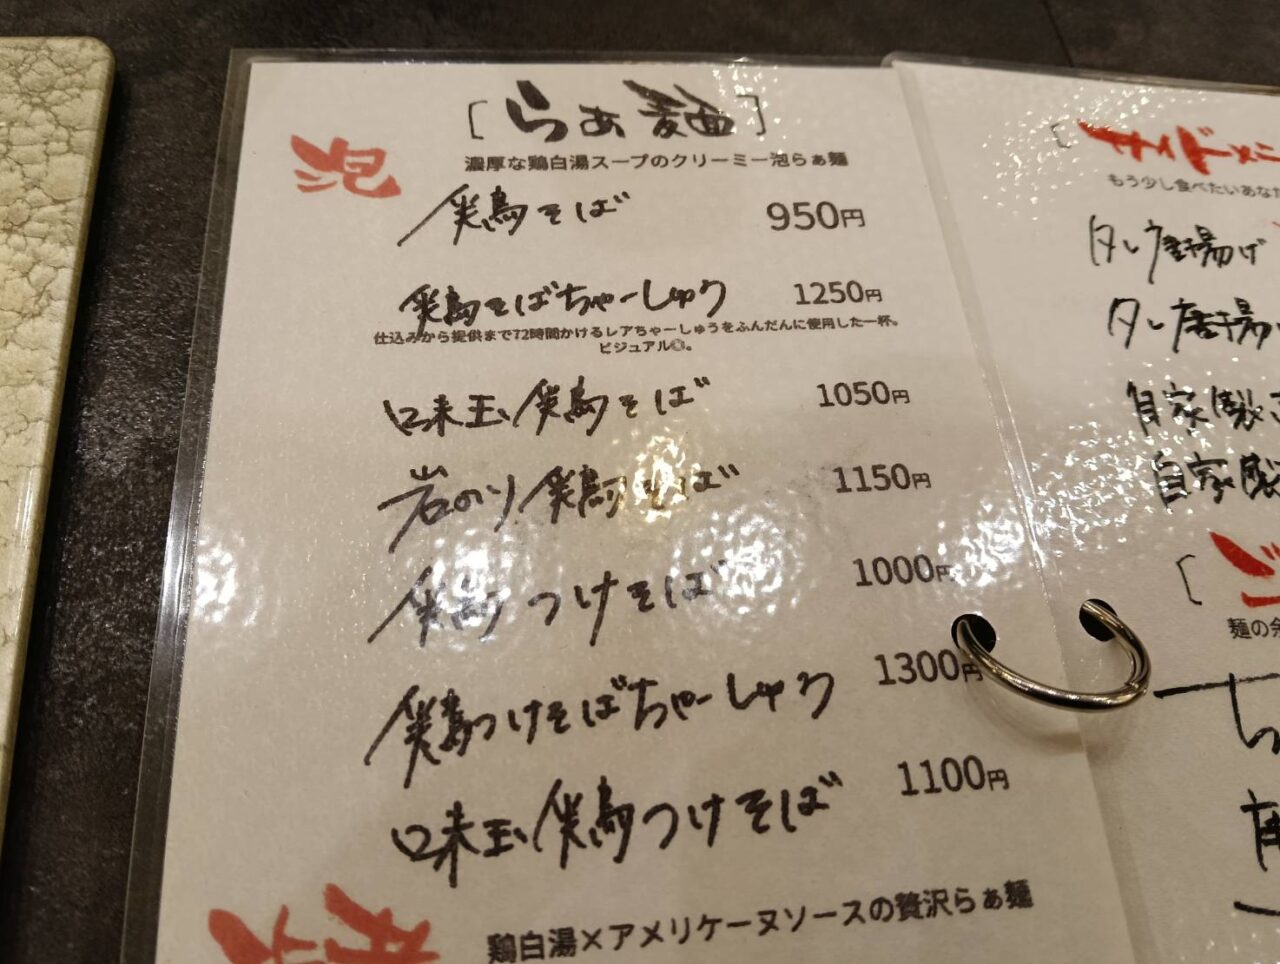 [らぁ麺]
泡
濃厚な鶏白湯スープのクリーミー泡らぁ麺
鶏そば 950円
鶏そばちゃーしゅう 1250円
仕込みから提供まで72時間かけるレアちゃーしゅうをふんだんに使用した一杯。
ビジュアル◎。
味玉鶏そば 1050円
岩のり鶏そば 1150円
鶏つけそば 1000円
鶏つけそばちゃーしゅう 1300円
味玉鶏つけそば 1100円
鶏白湯×アメリケーヌソースの贅沢らぁ麺
[サイドメニ
もう少し食べたいあな
タレ唐揚げ
タレ唐揚げ
自家製
自家製
[ご
麺の